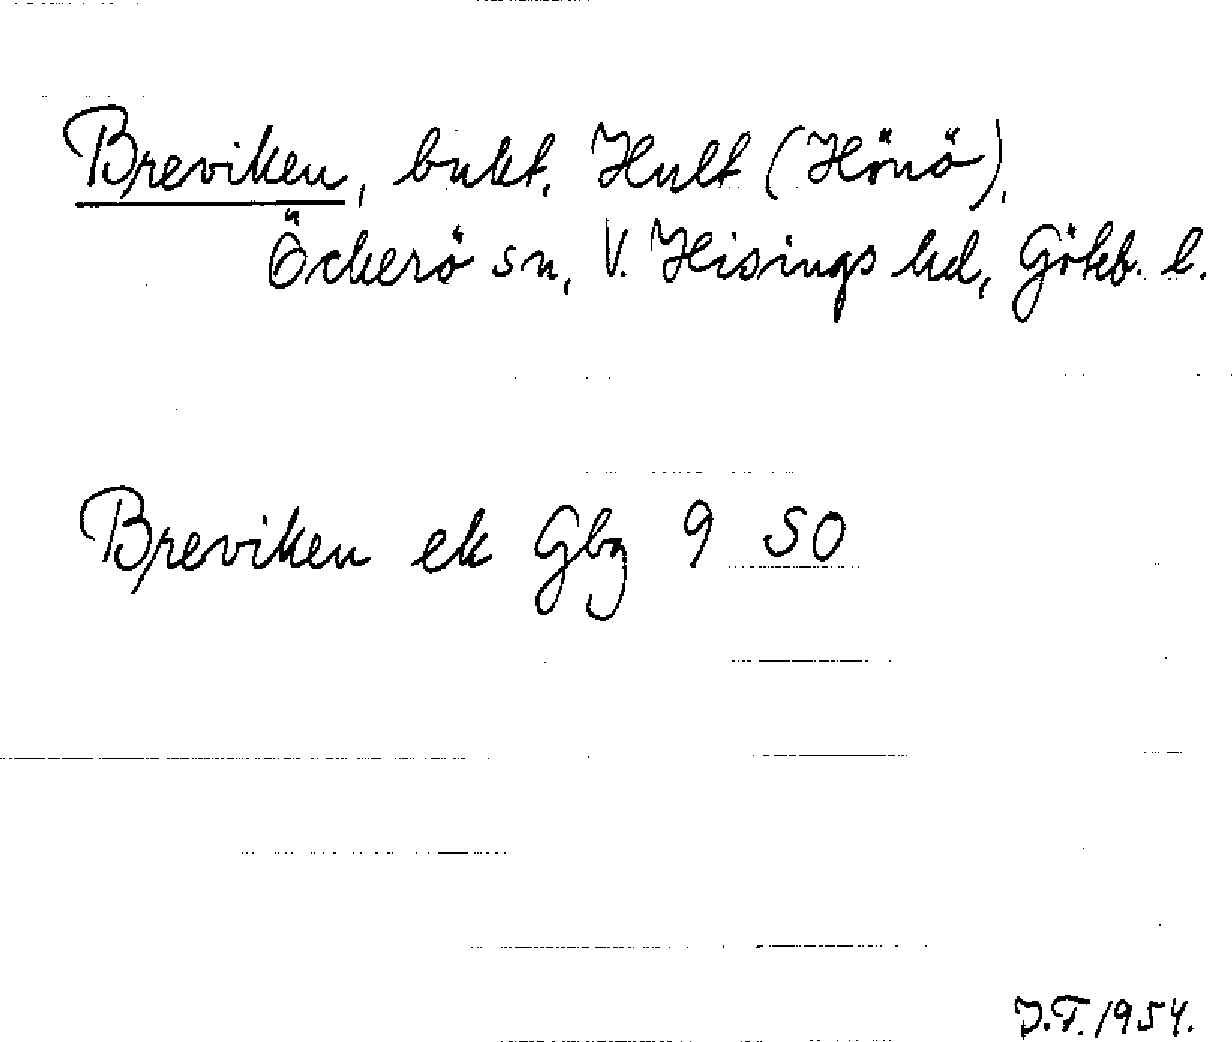 Breviken, bukt. Hult (Hönö),
Öckerö sn, V. Hisings hd, Göteb. l.
Breviken ek Gbg 9 SO
J.T. 1954.